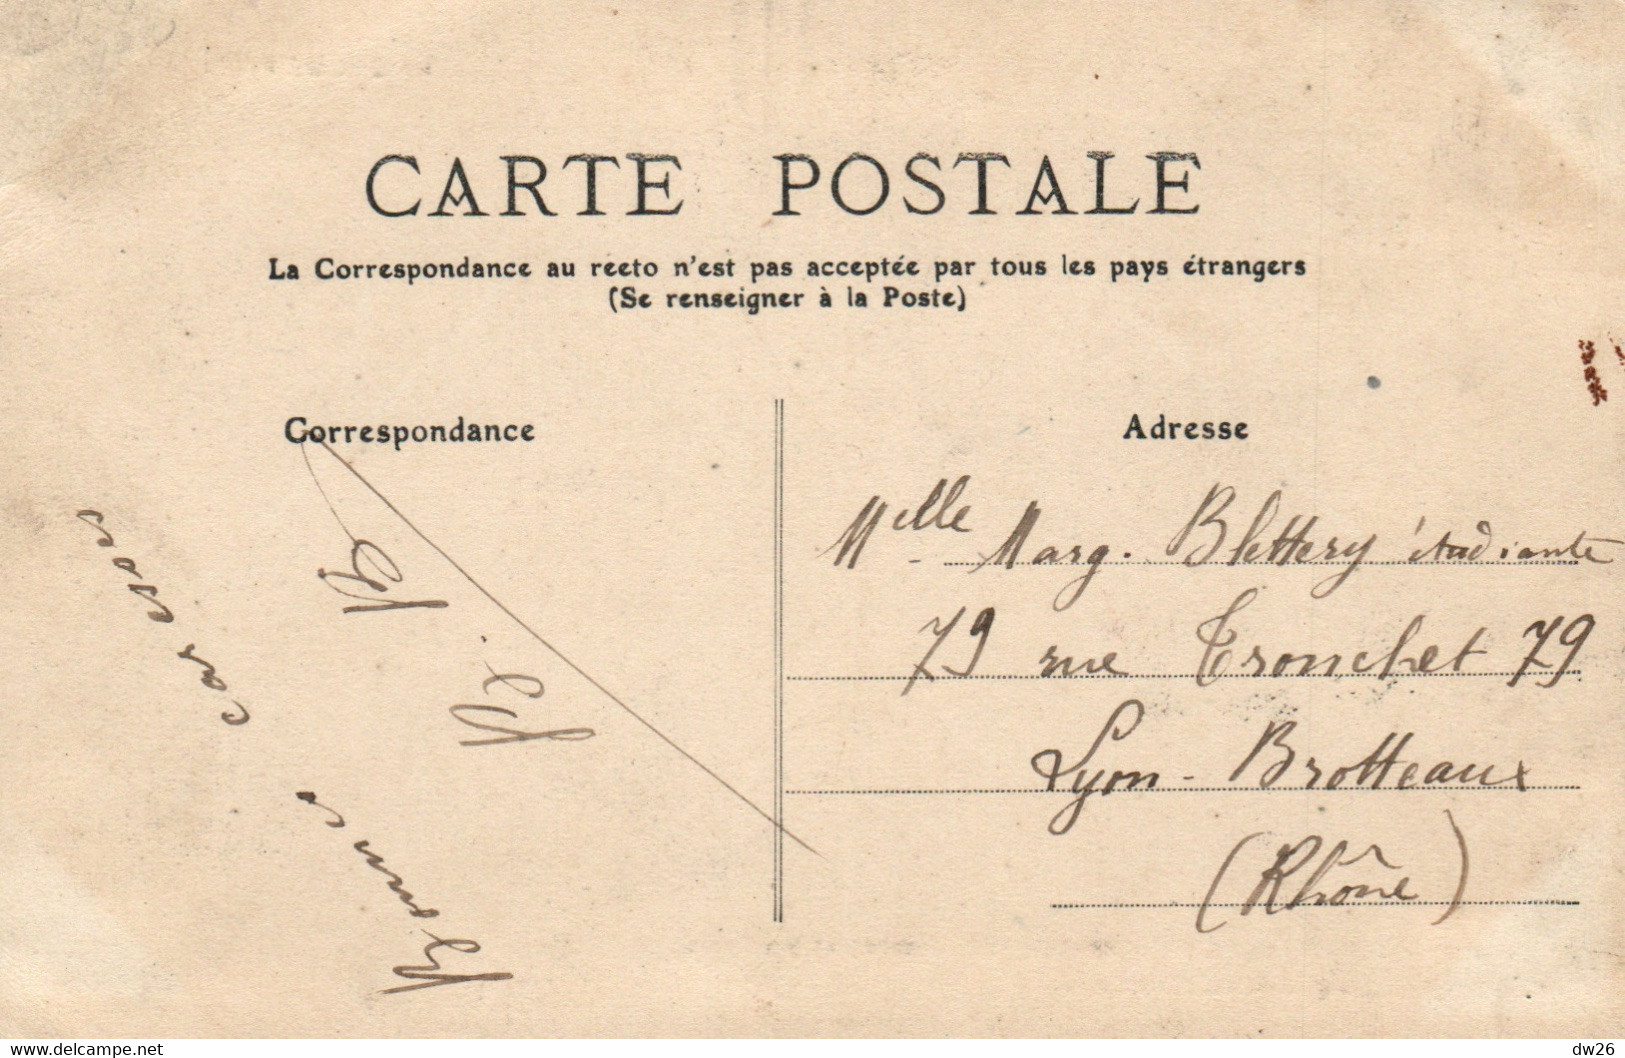 CARTE POSTALE
La Correspondance au recto n'est pas acceptée par tous les pays étrangers
(Se renseigner à la Poste)
Correspondance
Bonnes caresses
Adresse
Melle Marg. Blettery étudiante
79 rue Tronchet 79
Lyon - Brotteaux
(Rhône)
www.delcampe.net
dw26